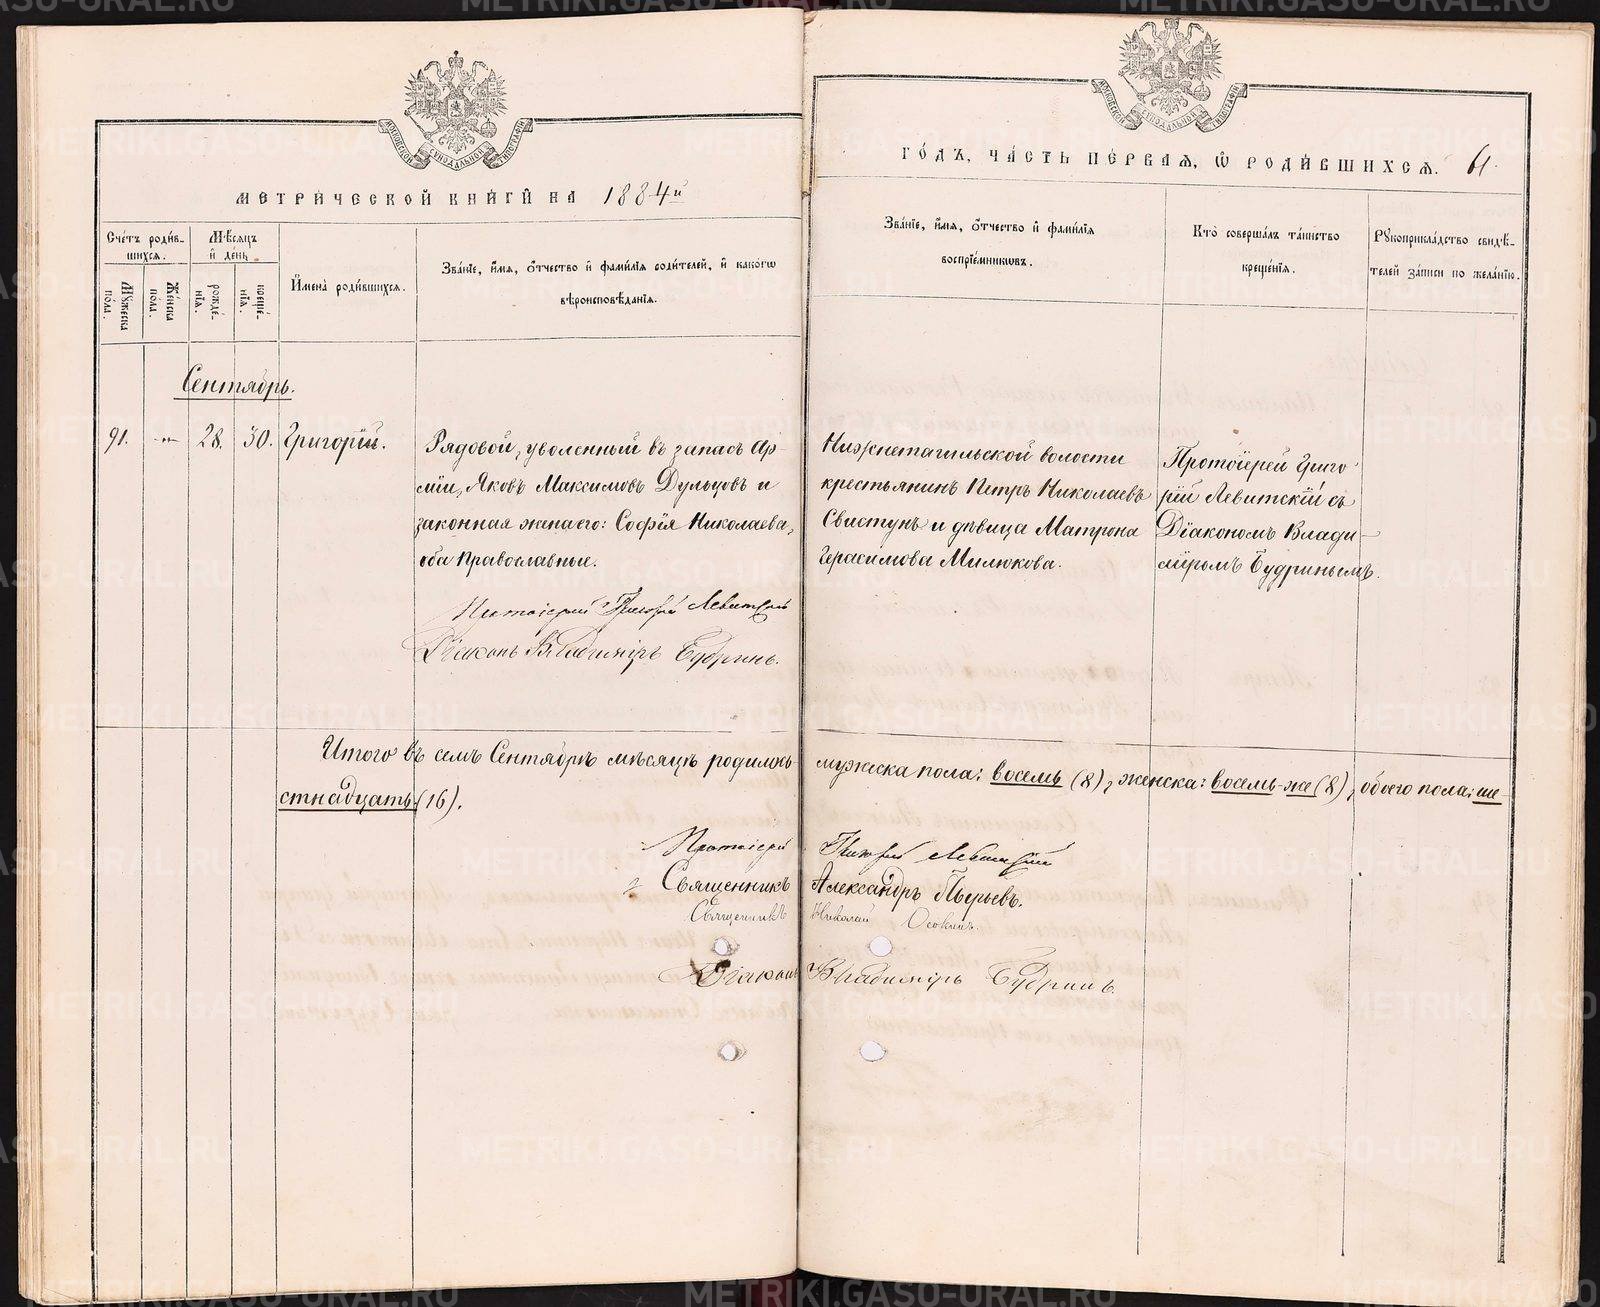 МОСКОВСКОЙ СѴНОДАЛЬНОЙ ТИПОГРАФІИ
МОСКОВСКОЙ СѴНОДАЛЬНОЙ ТИПОГРАФІИ
МЕТРИ́ЧЕСКОЙ КНИ́ГИ НА 1884й
ГО́ДЪ, ЧА́СТЬ ПЕ́РВАѦ, Ѡ РОДИ́ВШИХСѦ. 61.
Сче́тъ роди́в-
шихсѧ.
Мꙋ́жеска по́ла.
Же́нска по́ла.
Мѣ́сѧцъ и де́нь
рожде́-нїѧ.
креще́-нїѧ.
Имена̀ роди́вшихсѧ.
Зва́нїе, и́мѧ, ѻ́тчество и фами́лїѧ роди́телей, и како́гѡ
вѣроисповѣ́данїѧ.
Зва́нїе, и́мѧ, ѻ́тчество и фами́лїѧ
воспрїе́мникѡвъ.
Кто̀ соверша́лъ та́инство
креще́нїѧ.
Рꙋкоприкла́дство свидѣ́-
телей за́писи по жела́нїю.
Сентябрь.
91. -„- 28. 30. Григорій.
Рядовой, уволенный въ запасъ ар-
міи, Яковъ Максимовъ Дульцовъ и
законная жена его: Софія Николаева,
оба православные.
Протоіерей Григорій Левитскій
Діаконъ Владиміръ Будринъ.
Нижнетагильской волости
крестьянинъ Петръ Николаевъ
Свистунъ и дѣвица Матрона
Герасимова Милюкова.
Протоіерей Григо-
рій Левитскій съ
Діакономъ Влади-
міромъ Будринымъ.
Итого въ семъ Сентябрѣ мѣсяцѣ родилось мужеска пола: восемь (8), женска: восемь-же (8), обоего пола: ше-
стнадцать (16).
Протоіерей Григорій Левитскій
Священникъ Александръ
Священникъ Николай Осокинъ.
Діаконъ Владиміръ Будринъ.
METRIKI.GASO-URAL.RU